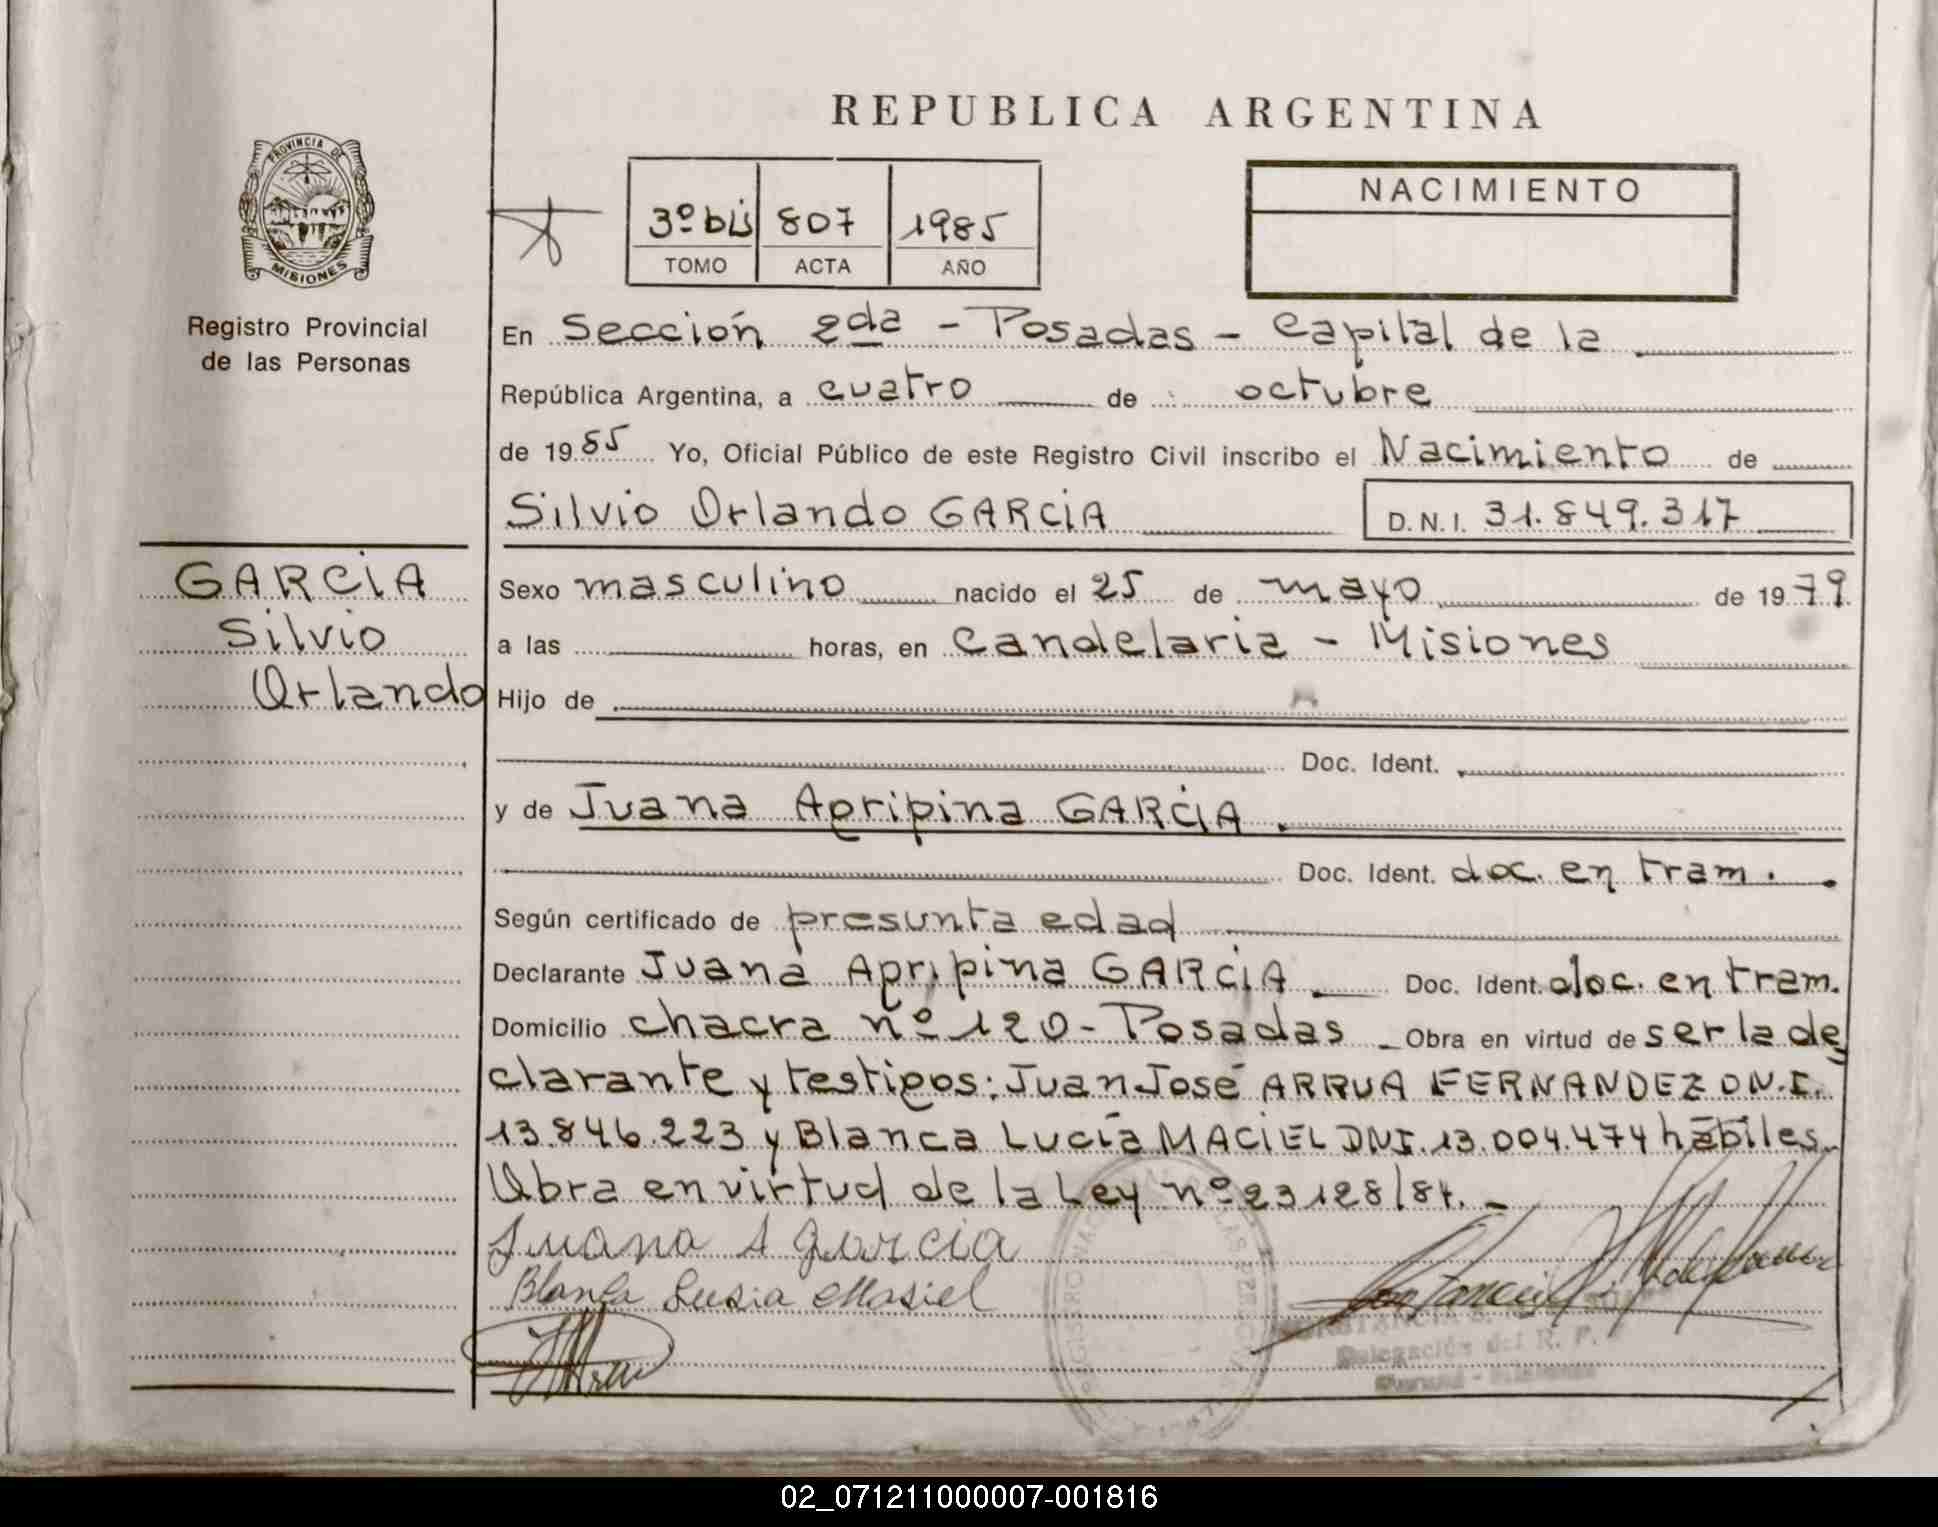 REPUBLICA ARGENTINA
PROVINCIA DE
MISIONES
Registro Provincial
de las Personas
3º bis 807 1985
TOMO ACTA AÑO
NACIMIENTO
En Sección 2da - Posadas - Capital de la
República Argentina, a cuatro de octubre
de 1985 Yo, Oficial Público de este Registro Civil inscribo el Nacimiento de
Silvio Orlando GARCIA D.N.I. 31.849.317
GARCIA
Silvio
Orlando
Sexo masculino nacido el 25 de mayo de 1979
a las horas, en Candelaria - Misiones
Hijo de
Doc. Ident.
y de Juana Agripina GARCIA.
Doc. Ident. doc. en tram.
Según certificado de presunta edad
Declarante Juana Agripina GARCIA Doc. Ident. doc. en tram.
Domicilio chacra nº 120 - Posadas Obra en virtud de ser la de
clarante y testigos: Juan José ARRUA FERNANDEZ D.N.I.
13.846.223 y Blanca Lucía MACIEL DNI. 13.004.474 hábiles.
Obra en virtud de la Ley nº 23128/84. -
Juana A Garcia
Blanca Lusia Masiel
Delegación del R. P.
02_071211000007-001816